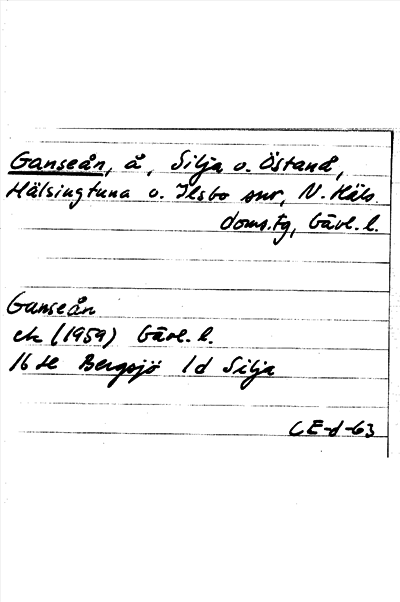 Ganseån, å, Silja o. Östanå,
Hälsingtuna o. Ilsbo snr, N. Häls.
doms.tg, Gävl. l.
Ganseån
ek (1959) Gävl. l.
16 H Bergsjö 1d Silja
CE-d-63